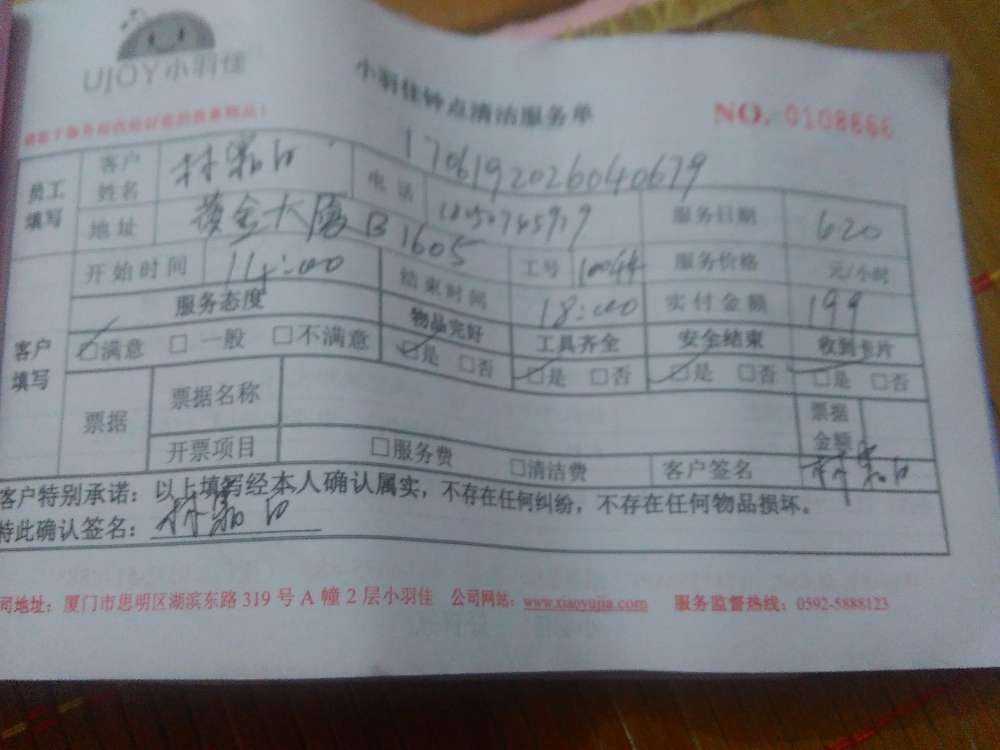 UJOY小羽佳
小羽佳钟点清洁服务单
NO. 0108666
1706192026040679
员工填写 客户姓名 电话 服务日期 620
地址 黄金大厦B1605 工号 10044 服务价格 元/小时
开始时间 结束时间 18:00 实付金额 199
服务态度 物品完好 工具齐全 安全结束 收到卡片
客户填写 □满意 □一般 □不满意 □是 □否 □是 □否 □是 □否 □是 □否
票据 票据名称 票据金额
开票项目 □服务费 □清洁费 客户签名
客户特别承诺：以上填写经本人确认属实，不存在任何纠纷，不存在任何物品损坏。
特此确认签名：
司地址：厦门市思明区湖滨东路 319 号 A 幢 2 层小羽佳 公司网站：www.xiaoyujia.com 服务监督热线：0592-5888123